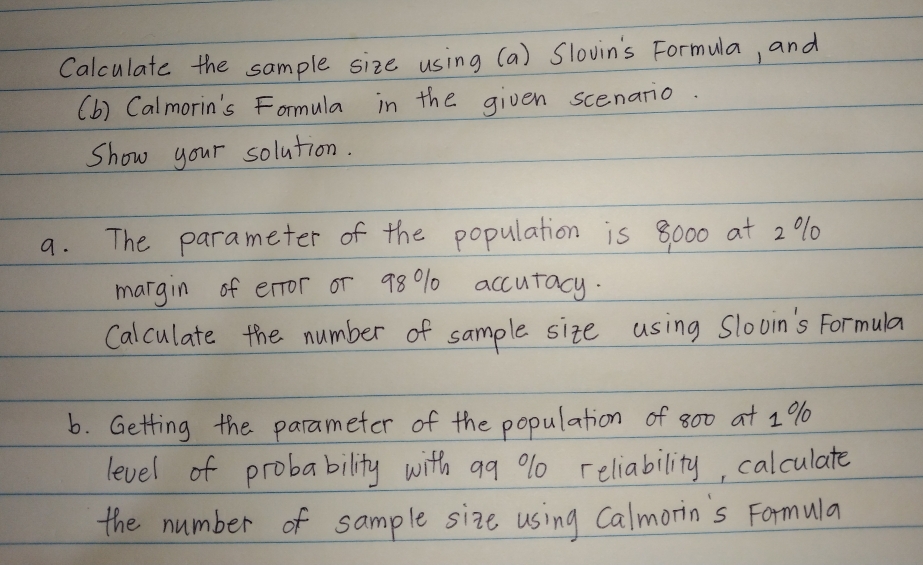 Calculate the sample size using (a) Slovin's Formula, and
(b) Calmorin's Formula in the given scenario.
Show your solution.
a. The parameter of the population is 8,000 at 2%
margin of error or 98% accuracy.
Calculate the number of sample size using Slovin's Formula
b. Getting the parameter of the population of 800 at 1%
level of probability with 99% reliability, calculate
the number of sample size using Calmorin's Formula